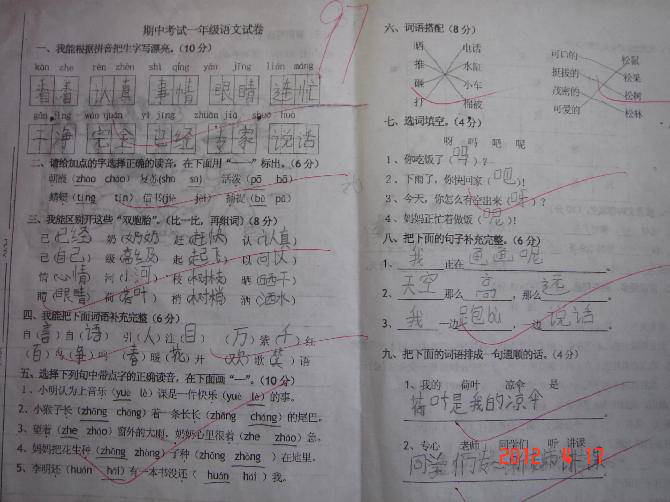 期中考试一年级语文试卷
97
一、我能根据拼音把生字写漂亮。(10分)
kàn zhe rèn zhēn shì qíng yǎn jīng lián máng
看着 认真 事情 眼睛 连忙
gān jìng wán quán yǐ jīng zhuān jiā shuō huà
干净 完全 已经 专家 说话
二、请给加点的字选择正确的读音，在下面用“一”标出。(6分)
三、我能区别开这些“双胞胎”。(比一比，再组词)(8分)
已(已经) 奶(奶奶) 赶(赶快) 认(认真)
己(自己) 级(高级) 起(起飞) 以(可以)
情(心情) 河(小河) 枝(树枝) 晒(晒干)
睛(眼睛) 荷(荷叶) 梢(树梢) 洒(洒水)
四、我能把下面词语补充完整(6分)
自(言)自(语) 引(人)注(目) (万)紫(千)红
(春)暖(花)开 (欢)歌(笑)语
五、选择下列句中带点字的正确读音，在下面画“一”。(10分)
1、小明认为上音乐(yuè lè)课是一件快乐(yuè lè)的事。
2、小猴子长(zhǎng cháng)着一条长长(zhǎng cháng)的尾巴。
3、望着(zhe zháo)窗外的大雨，奶奶心里很着(zhe zháo)急。
4、妈妈把花生种(zhǒng zhòng)子种(zhǒng zhòng)在地里。
5、李明还(huán hái)有一本书没还(huán hái)我。
六、词语搭配(8分)
晒 电话
推 水缸
砸 小车
打 棉被
可口的 松鼠
挺拔的 松果
茂密的 松树
可爱的 松林
七、选词填空。(4分)
呀 吗 吧 呢
1、你吃饭了(吗)?
2、下雨了，你快回家(吧)!
3、今天，你怎么有空出来(呀)?
4、妈妈正忙着做饭(呢)!
八、把下面的句子补充完整。(6分)
1、我正在画画呢。
2、天空那么高，那么远。
3、我一边跑步，一边说话。
九、把下面的词语排成一句通顺的话。(4分)
1、我的 荷叶 凉伞 是
荷叶是我的凉伞
2、专心 老师 同学们 听 讲课
2012 4 17